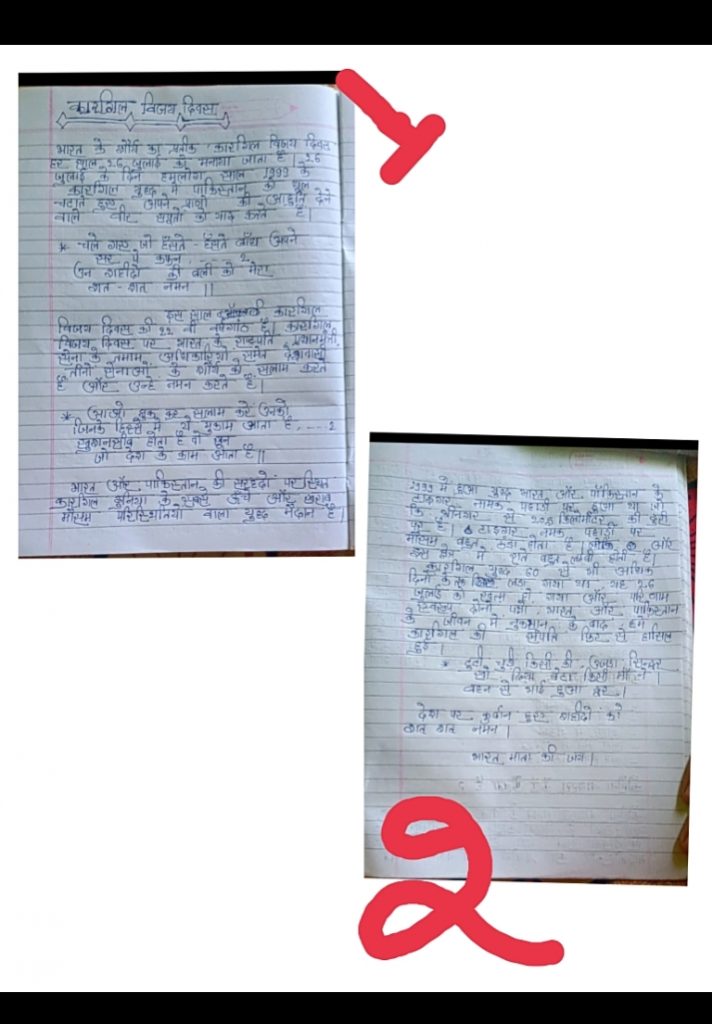 1
कारगिल विजय दिवस
भारत के शौर्य का प्रतीक 'कारगिल विजय दिवस'
हर साल 26 जुलाई को मनाया जाता है। 26
जुलाई के दिन हमलोग साल 1999 के
कारगिल युद्ध में पाकिस्तान को धूल
चटाते हुए अपने प्राणों की आहुति देने
वाले वीर सपूतों को याद करते हैं।
* चले गए जो हँसते-हँसते बाँध अपने
सर पे कफन, .... 2
उन शहीदों की बली को मेरा
शत-शत नमन ।।
इस साल कारगिल
विजय दिवस की 22 वी वर्षगांठ है। कारगिल
विजय दिवस पर भारत के राष्ट्रपति, प्रधानमंत्री,
सेना के तमाम अधिकारियों समेत देशवासी
तीनों सेनाओं के शौर्य को सलाम करते
है और उन्हें नमन करते हैं।
* आओ झुक कर सलाम करे उनको
जिनके हिस्से में ये मुकाम आता है, .... 2
खुशनसीब होता है वो खून
जो देश के काम आता है।।
भारत और पाकिस्तान की सरहदों पर स्थित
कारगिल दुनिया के सबसे ऊँचे और खराब
मौसम परिस्थितियों वाला युद्ध मैदान है।
1999 में हुआ युद्ध भारत और पाकिस्तान के
टाइगर नामक पहाड़ी पर हुआ था जो
कि श्रीनगर से 205 किलोमीटर की दूरी
पर है। टाइगर नामक पहाड़ी पर
मौसम बहुत ठंडा होता है और
इस क्षेत्र में रातें बहुत लम्बी होती है।
कारगिल युद्ध 60 से भी अधिक
दिनों के लिए लड़ा गया था, यह 26
जुलाई को खत्म हो गया और परिणाम
स्वरूप दोनों पक्षों, भारत और पाकिस्तान
के जीवन में नुकसान के बाद, हमें
कारगिल की संपत्ति फिर से हासिल
हुई।
* टूटी चूड़ी किसी की, उजड़ा सिन्दूर
खो दिया बेटा किसी माँ ने।
बहन से भाई हुआ दूर।
देश पर कुर्बान हुए शहीदों को
शत शत नमन।
भारत माता की जय।
2